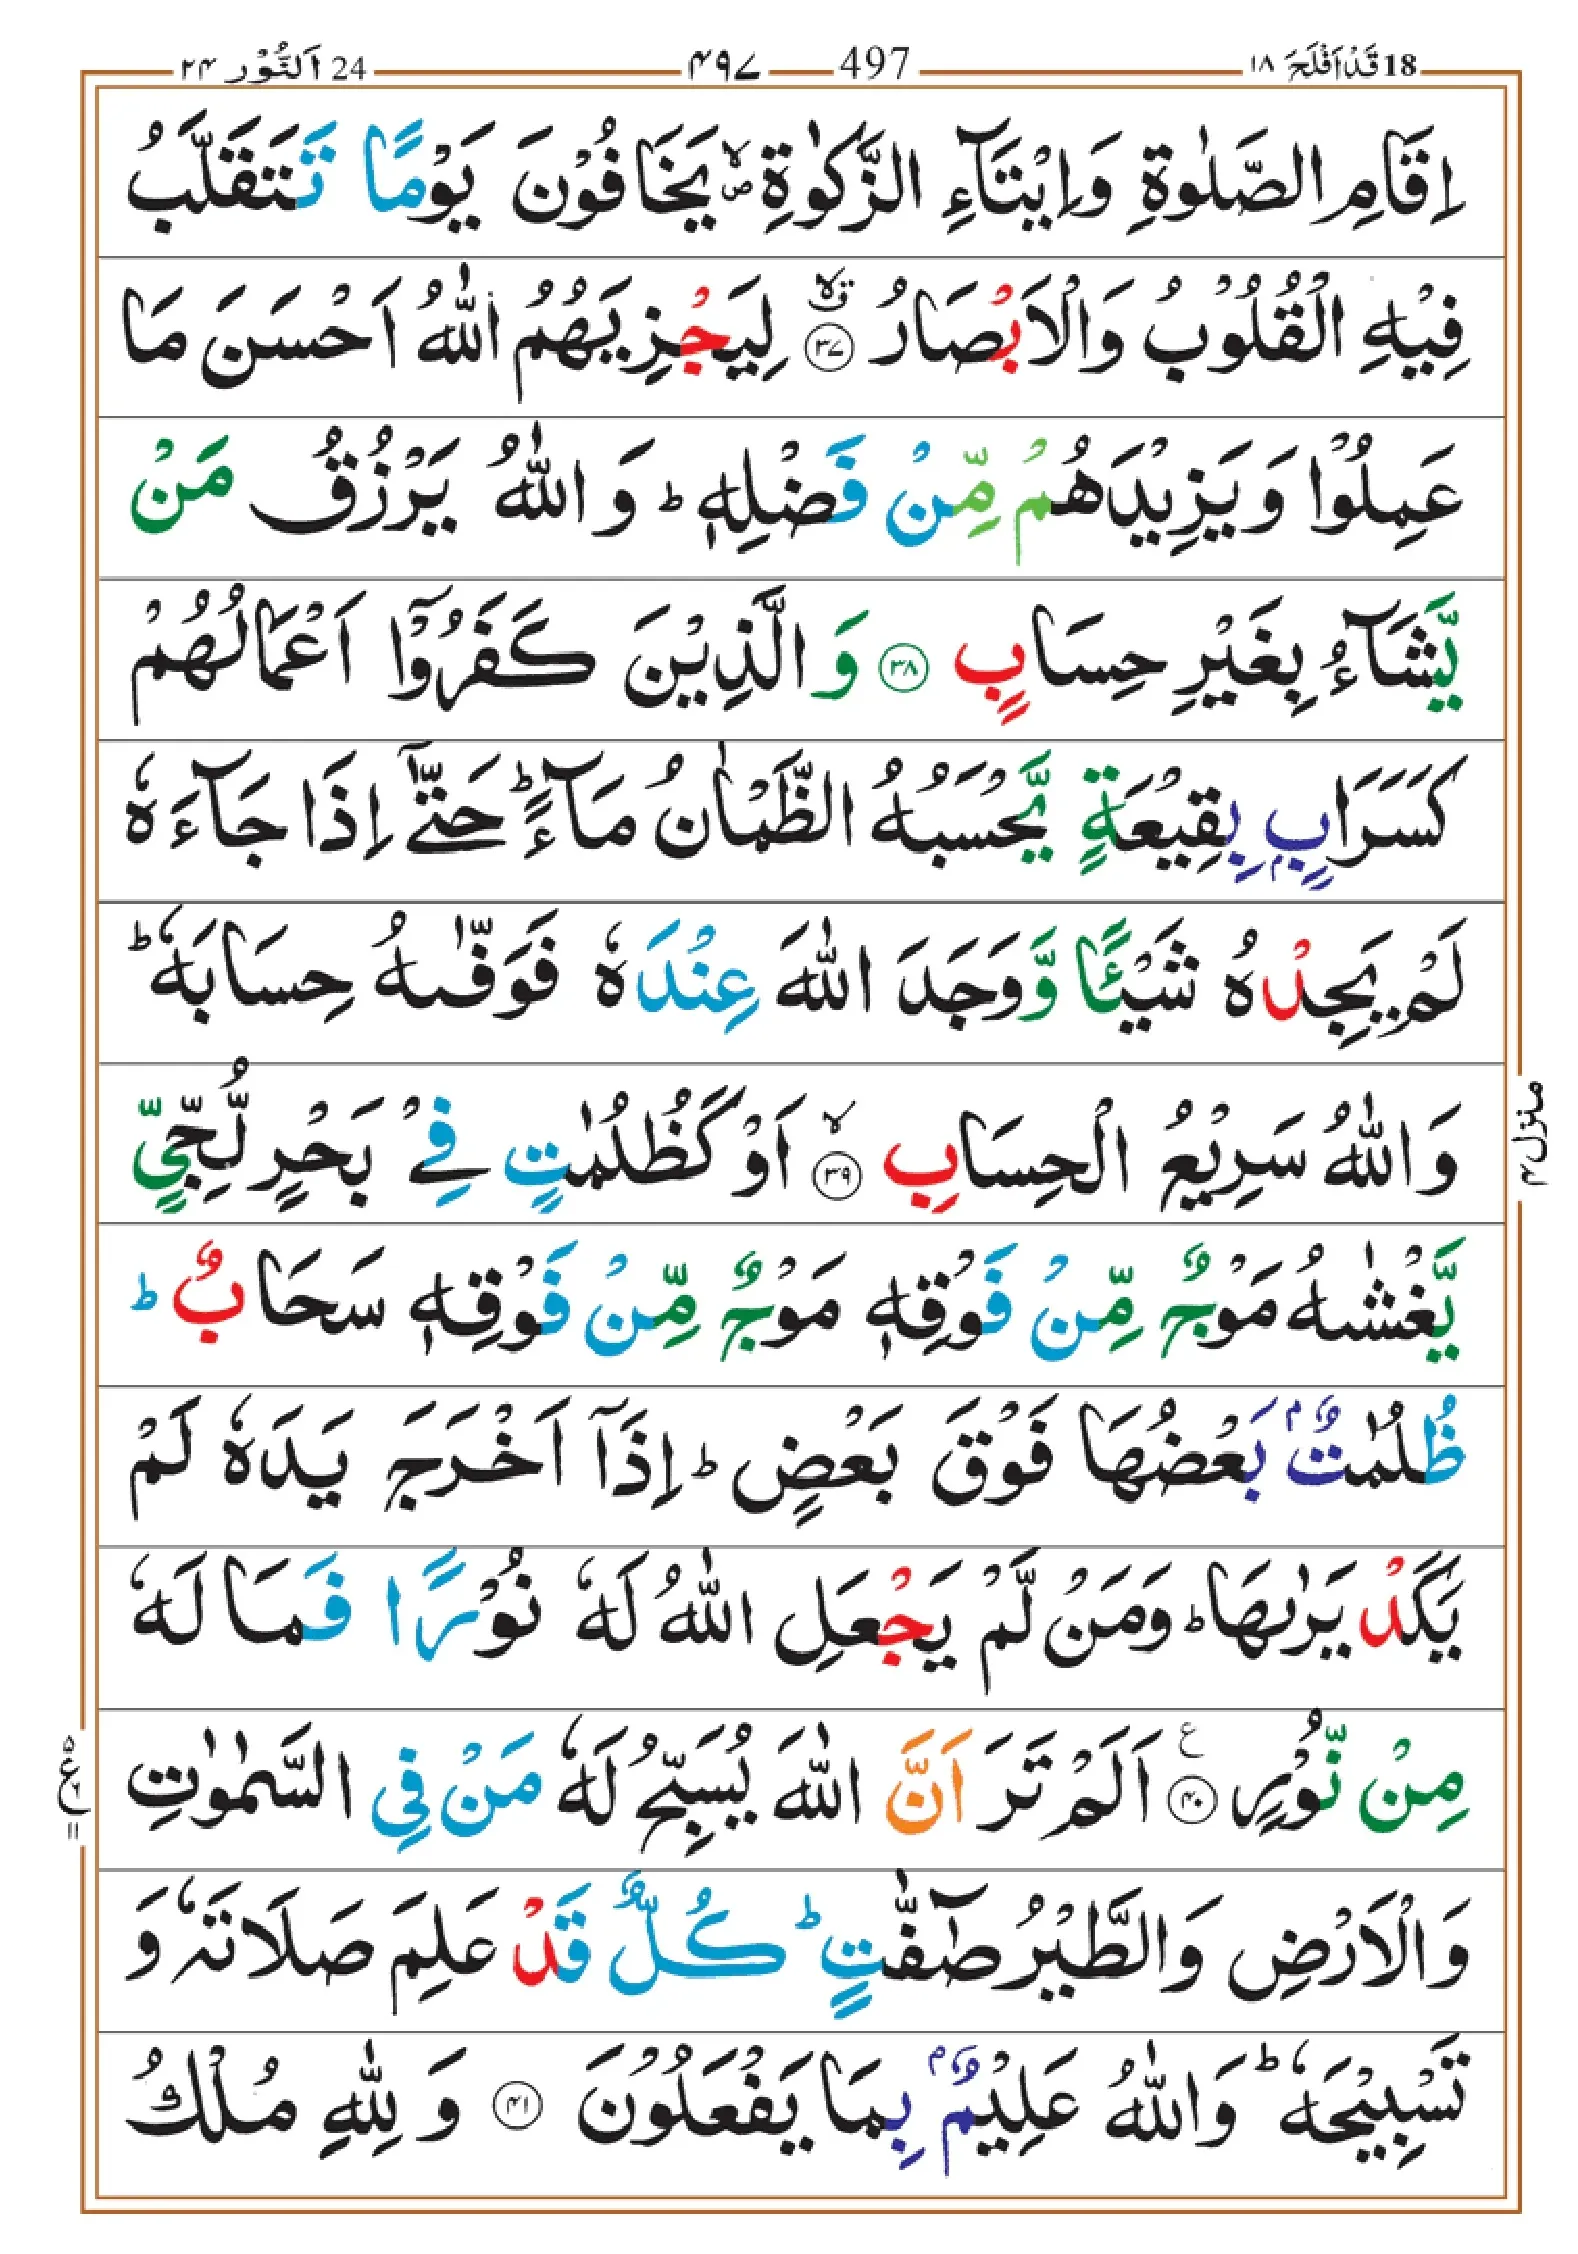 24 اَلنُّوْر ٢٤
497 ٤٩٧
18 قَدْ اَفْلَحَ ١٨
اِقَامِ الصَّلٰوةِ وَاِيْتَآءِ الزَّكٰوةِ ۪ۙ يَخَافُوْنَ يَوْمًا تَتَقَلَّبُ
فِيْهِ الْقُلُوْبُ وَالْاَبْصَارُ ۙ ق ﴿٣٧﴾ لِيَجْزِيَهُمُ اللّٰهُ اَحْسَنَ مَا
عَمِلُوْا وَيَزِيْدَهُمْ مِّنْ فَضْلِهٖ ؕ وَاللّٰهُ يَرْزُقُ مَنْ
يَّشَآءُ بِغَيْرِ حِسَابٍ ﴿٣٨﴾ وَالَّذِيْنَ كَفَرُوْۤا اَعْمَالُهُمْ
كَسَرَابٍۭ بِقِيْعَةٍ يَّحْسَبُهُ الظَّمْاٰنُ مَآءً ؕ حَتّٰۤى اِذَا جَآءَهٗ
لَمْ يَجِدْهُ شَيْـًٔا وَّوَجَدَ اللّٰهَ عِنْدَهٗ فَوَفّٰىهُ حِسَابَهٗ ؕ
وَاللّٰهُ سَرِيْعُ الْحِسَابِ ۙ ﴿٣٩﴾ اَوْ كَظُلُمٰتٍ فِيْ بَحْرٍ لُّجِّيٍّ
يَّغْشٰىهُ مَوْجٌ مِّنْ فَوْقِهٖ مَوْجٌ مِّنْ فَوْقِهٖ سَحَابٌ ؕ
ظُلُمٰتٌۢ بَعْضُهَا فَوْقَ بَعْضٍ ؕ اِذَاۤ اَخْرَجَ يَدَهٗ لَمْ
يَكَدْ يَرٰىهَا ؕ وَمَنْ لَّمْ يَجْعَلِ اللّٰهُ لَهٗ نُوْرًا فَمَا لَهٗ
مِنْ نُّوْرٍ ع ﴿٤٠﴾ اَلَمْ تَرَ اَنَّ اللّٰهَ يُسَبِّحُ لَهٗ مَنْ فِي السَّمٰوٰتِ
وَالْاَرْضِ وَالطَّيْرُ صٰٓفّٰتٍ ؕ كُلٌّ قَدْ عَلِمَ صَلَاتَهٗ وَ
تَسْبِيْحَهٗ ؕ وَاللّٰهُ عَلِيْمٌۢ بِمَا يَفْعَلُوْنَ ﴿٤١﴾ وَلِلّٰهِ مُلْكُ
منزل ٤